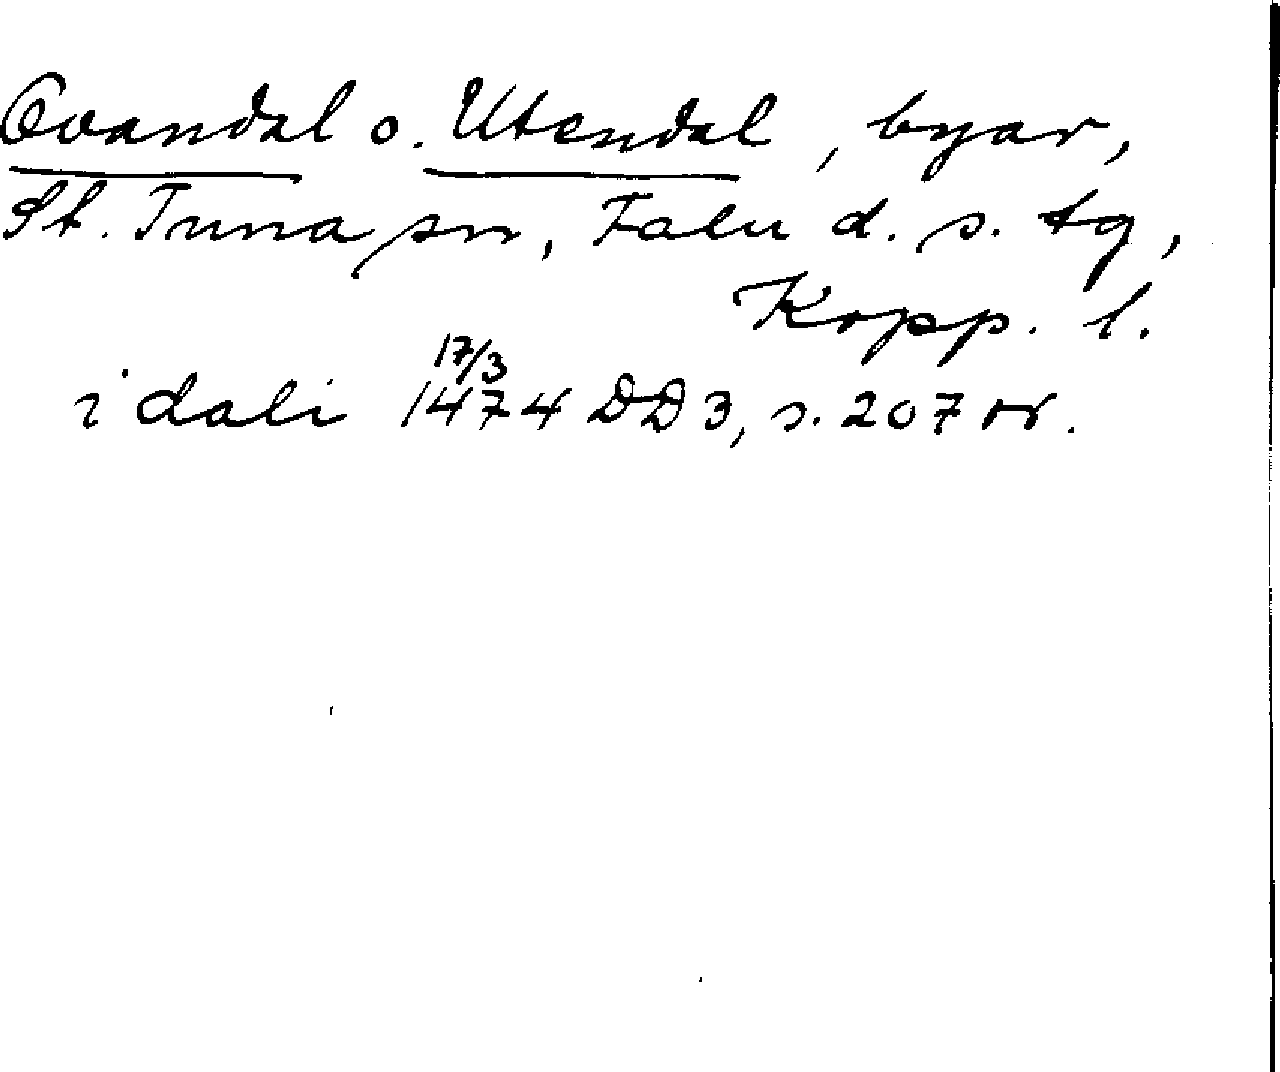 Ovandal o. Utendal, byar,
St. Tuna sn, Falu d. s. tg,
Kopp. l.
17/3
i dali 1474 DD 3, s. 207 or.